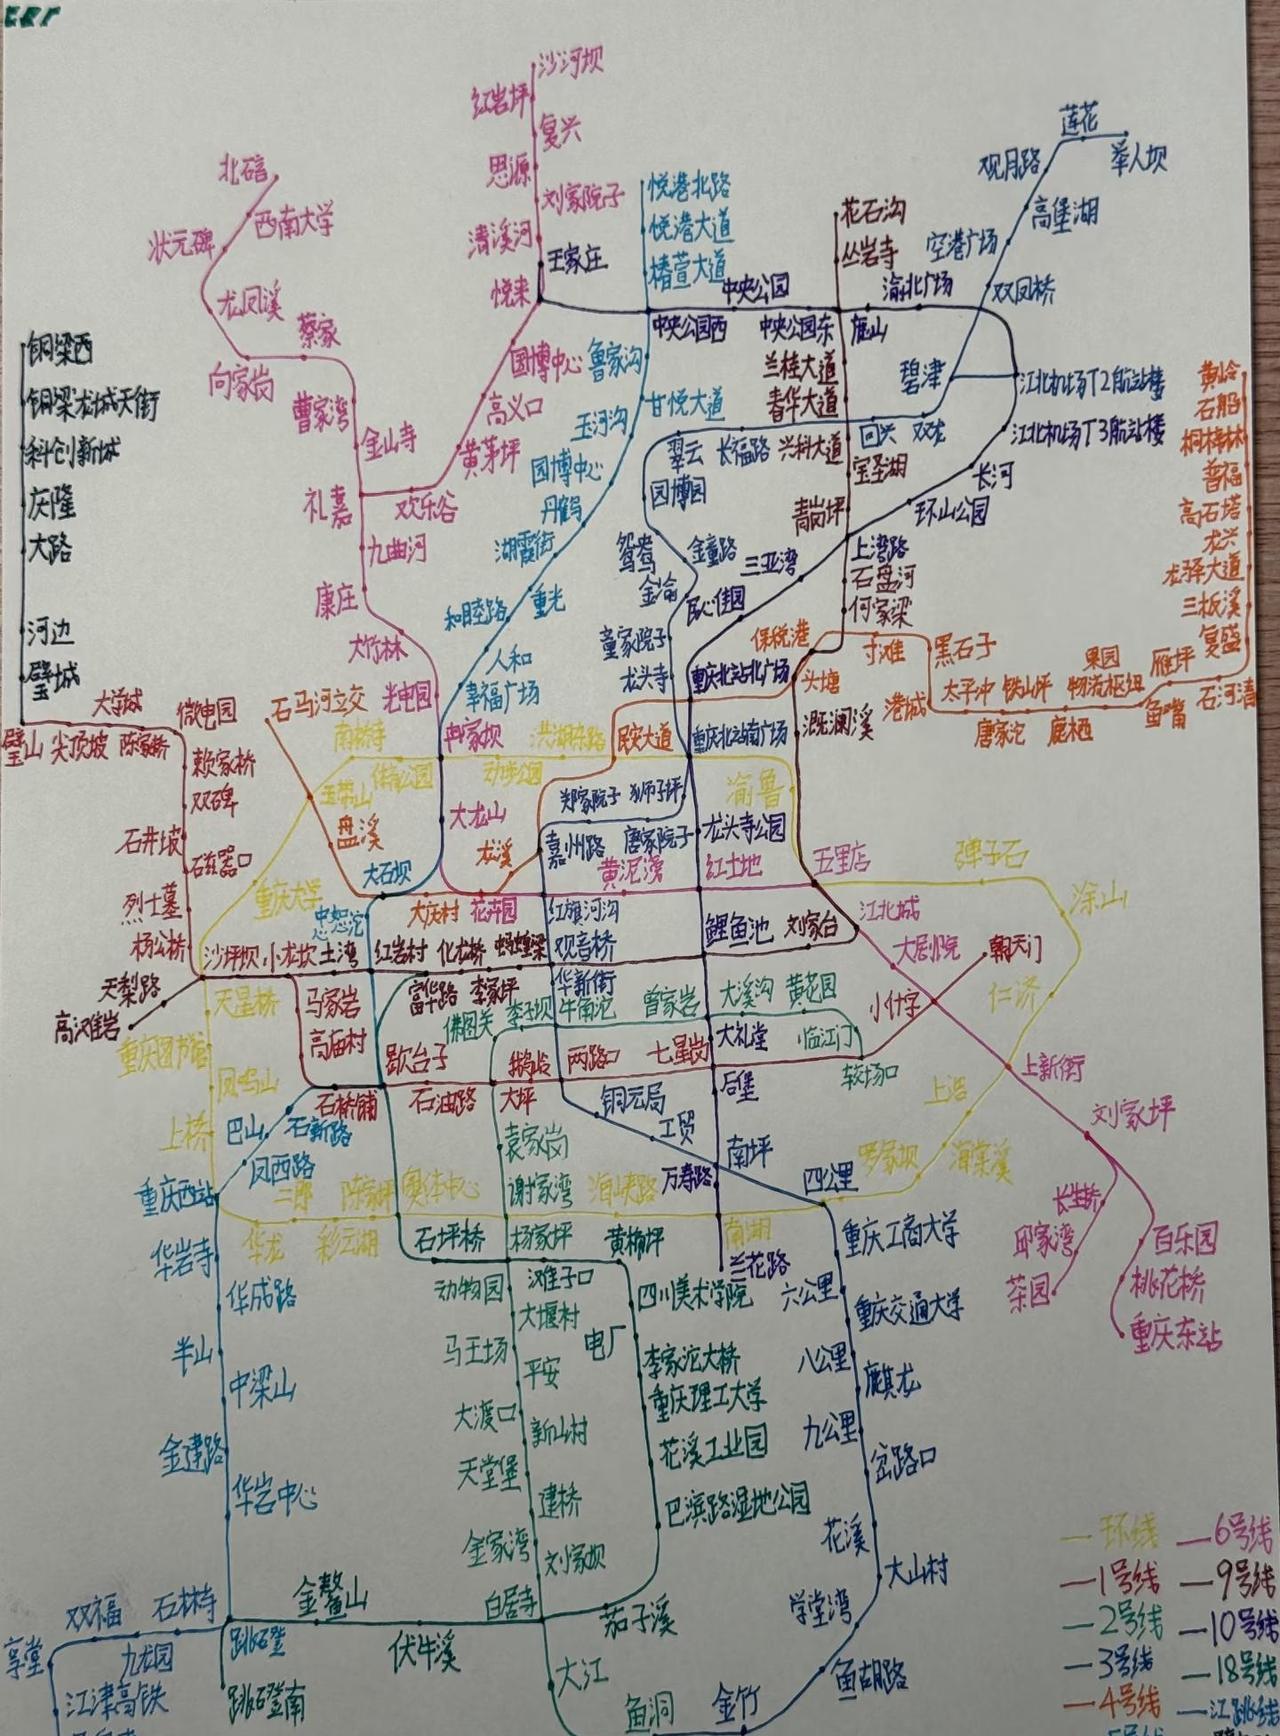 沙河坝
红岩坪
复兴
思源
刘家院子
清溪河
王家庄
悦来
国博中心
高义口
黄茅坪
欢乐谷
北碚
西南大学
状元碑
龙凤溪
蔡家
向家岗
曹家湾
金山寺
礼嘉
九曲河
康庄
大竹林
光电园
冉家坝
大龙山
悦港北路
悦港大道
椿萱大道
中央公园
中央公园西
中央公园东
鹿山
渝北广场
鲁家沟
甘悦大道
玉河沟
园博中心
丹鹤
湖霞街
和睦路
重光
人和
幸福广场
花石沟
丛岩寺
兰桂大道
春华大道
兴科大道
宝圣湖
青岗坪
上湾路
石盘河
何家梁
莲花
举人坝
观月路
高堡湖
空港广场
双凤桥
碧津
江北机场T2航站楼
江北机场T3航站楼
长河
环山公园
三亚湾
民心佳园
重庆北站北广场
回兴
双龙
长福路
翠云
园博园
鸳鸯
金童路
金渝
童家院子
龙头寺
铜梁西
铜梁龙城天街
科创新城
庆隆
大路
河边
璧城
璧山
尖顶坡
大学城
陈家桥
微电园
赖家桥
双碑
石井坡
磁器口
烈士墓
杨公桥
沙坪坝
小龙坎
土湾
红岩村
化龙桥
天梨路
高滩岩
黄岭
石船
桐梓林
普福
高石塔
龙兴
龙泽大道
三板溪
复盛
石河清
雁坪
鱼嘴
果园
物流枢纽
鹿栖
铁山坪
唐家沱
太平冲
港城
黑石子
寸滩
保税港
头塘
溉澜溪
石马河立交
南桥寺
体育公园
玉带山
盘溪
洪湖东路
民安大道
动步公园
重庆北站南广场
渝鲁
郑家院子
狮子坪
唐家院子
嘉州路
龙头寺公园
龙溪
黄泥滂
红土地
五里店
弹子石
涂山
重庆大学
大石坝
大庆村
花卉园
红旗河沟
观音桥
鲤鱼池
刘家台
江北城
大剧院
朝天门
小什字
仁济
上新街
天星桥
马家岩
高庙村
重庆图书馆
凤鸣山
上桥
巴山
石新路
石桥铺
凤西路
重庆西站
富华路
李家坪
华新街
佛图关
李子坝
牛角沱
曾家岩
大溪沟
黄花园
临江门
大礼堂
较场口
歇台子
石油路
大坪
鹅岭
两路口
七星岗
后堡
铜元局
工贸
南坪
万寿路
四公里
罗家坝
海棠溪
上浩
袁家岗
谢家湾
海峡路
南湖
兰花路
二郎
陈家坪
奥体中心
华龙
彩云湖
石坪桥
杨家坪
黄桷坪
动物园
滩子口
四川美术学院
刘家坪
长生桥
邱家湾
茶园
百乐园
桃花桥
重庆东站
重庆工商大学
六公里
重庆交通大学
八公里
麒龙
九公里
岔路口
花溪
大山村
学堂湾
鱼胡路
金竹
鱼洞
华岩寺
华成路
半山
中梁山
金建路
华岩中心
大堰村
马王场
平安
大渡口
新山村
天堂堡
建桥
金家湾
刘家坝
白居寺
大江
电厂
李家沱大桥
重庆理工大学
花溪工业园
巴滨路湿地公园
茄子溪
伏牛溪
金鳌山
跳磴
跳磴南
石林寺
双福
九龙园
享堂
江津高铁
环线
6号线
1号线
9号线
2号线
10号线
3号线
18号线
4号线
江跳线
5号线